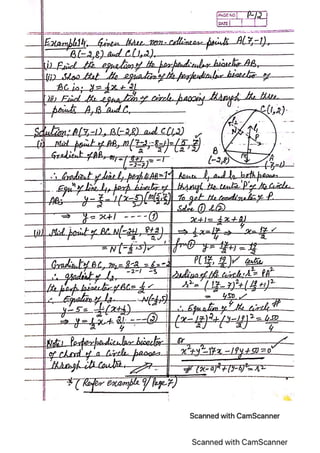 PAGE NO. P-12
DATE
Example 14. Given three non-collinear points A(7,-1),
B(-2,8) and C(1,2).
(i) Find the equation of the perpendicular bisector AB,
(ii) Show that the equation of the perpendicular bisector of
BC is; y = 1/2 x + 21/4
(iii) Find the equation of circle passing through the three
points A, B and C.
C(1,2)
N
P
B
(-2,8)
M
A
(7,-1)
Solution: A(7,-1), B(-2,8) and C(1,2)
(i) Mid point of AB, M(7-2/2, -8+1/2) = (5/2, 7/2)
Gradient of AB, m1 = 8+1/-2-7 = -1
∴ Gradient of line l1 perp AB = 1
Eqn of line l1, perp bisector of
AB: y - 7/2 = 1(x - 5/2) M(5/2, 7/2)
⇒ y = x+1 ---- (1)
(ii) Mid point of BC, N(-2+1/2, 8+2/2)
= N(-1/2, 5)
Gradient of BC, m2 = 8-2/-2-1 = 6/-3 = -2
∴ gradient of l2
the perp bisector of BC = 1/2
∴ Equation of l2. N(-1/2, 5)
y-5 = 1/2 (x+1/2)
⇒ y = 1/2 x + 21/4 --- (2)
Note: Perpendicular bisector
of chord of a circle passes
through its centre.
* (Refer example 9/Page 7)
Hence l1 and l2 both passes
through the centre 'P' of the circle.
To get the coordinates of P
Solve (1) & (2)
x+1 = 1/2 x + 21/4
⇒ 1/2 x = 17/4 ⇒ x = 17/2
from (1) y = 17/2 + 1 = 19/2
P(17/2, 19/2) centre
Radius of the circle: r = PA
r² = (17/2 - 7)² + (19/2 + 1)²
= 450/4
∴ Equation of the circle,
(x - 17/2)² + (y - 19/2)² = 450/4
or
x² + y² - 17x - 19y + 50 = 0
# (x-a)² + (y-b)² = r²
Scanned with CamScanner
Scanned with CamScanner